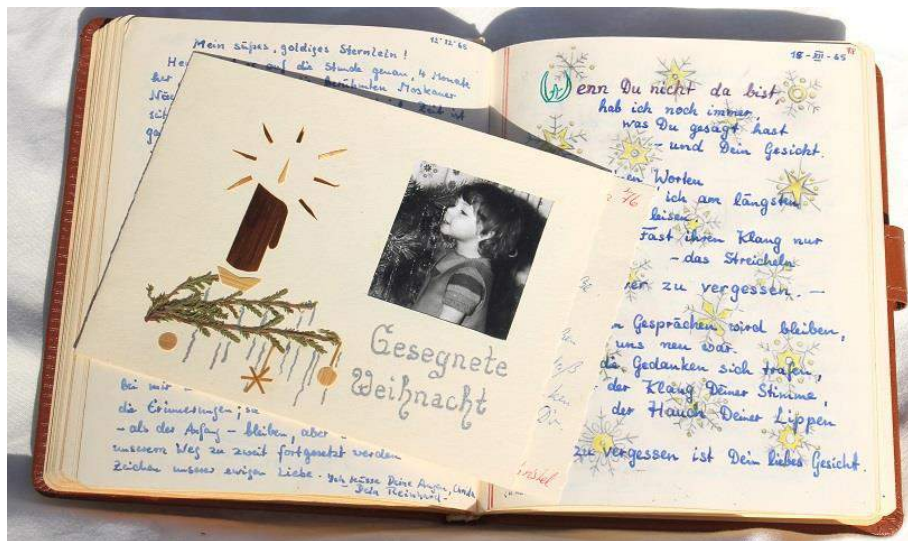 12.12.65
Mein süßes, goldiges Sternlein!
auf die Stunde genau, 4 Monate
berühmten Moskauer
Zeit ist
bei mir
die Erinnerungen, sa
- als der Anfang - bleiben, aber
unserem Weg zu zweit fortgesetzt werden
Zeichen unserer ewigen Liebe. Ich küsse Deine Augen,
Dein Reinhard.-
Gesegnete
Weihnacht
76
18-XII-65
Wenn Du nicht da bist,
hab ich noch immer,
was Du gesagt hast
- und Dein Gesicht.
Worten
ich am längsten
leisen
Fast ihren Klang nur
- das Streicheln
zu vergessen. -
Gesprächen wird bleiben,
uns neu war.
die Gedanken sich trafen,
der Klang Deiner Stimme,
der Hauch Deiner Lippen
zu vergessen ist Dein liebes Gesicht.